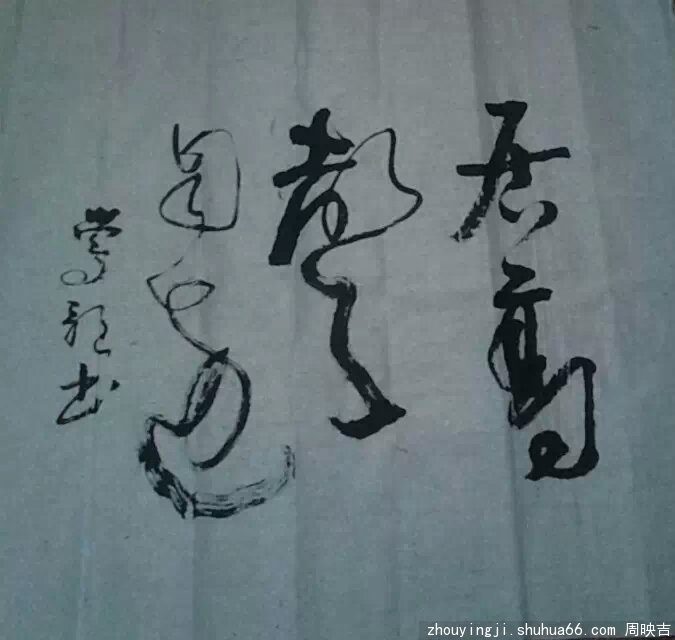 居高
聲
自遠
zhouyingji.shuhua66.com 周映吉